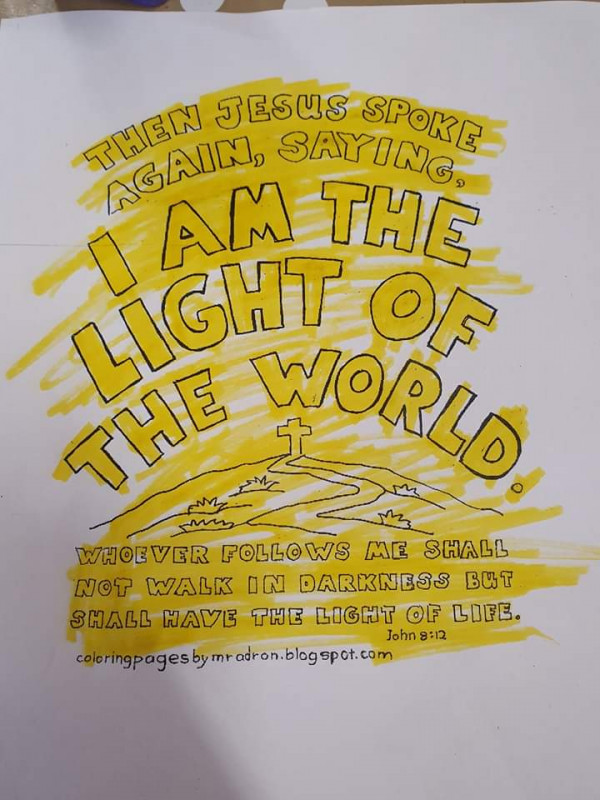 THEN JESUS SPOKE
AGAIN, SAYING,
I AM THE
LIGHT OF
THE WORLD.
WHOEVER FOLLOWS ME SHALL
NOT WALK IN DARKNESS BUT
SHALL HAVE THE LIGHT OF LIFE.
John 8:12
coloringpagesbymradron.blogspot.com